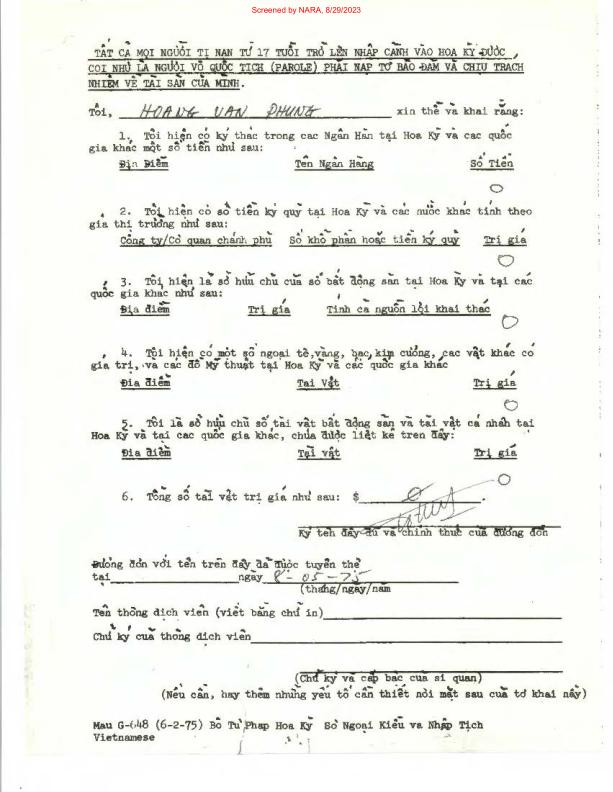 Screened by NARA, 8/29/2023
TẤT CẢ MỌI NGƯỜI TỊ NAN TỪ 17 TUỔI TRỞ LÊN NHẬP CẢNH VÀO HOA KỲ ĐƯỢC
COI NHƯ LÀ NGƯỜI VÔ QUỐC TỊCH (PAROLE) PHẢI NẠP TỜ BẢO ĐẢM VÀ CHỊU TRÁCH
NHIỆM VỀ TÀI SẢN CỦA MÌNH.
Tôi, HOANG VAN PHUNG xin thề và khai rằng:
1. Tôi hiện có ký thác trong các Ngân Hàn tại Hoa Kỳ và các quốc
gia khác một số tiền như sau:
Địa Điểm Tên Ngân Hàng Số Tiền
0
2. Tôi hiện có số tiền ký quỹ tại Hoa Kỳ và các nước khác tính theo
giá thị trường như sau:
Công ty/Cơ quan chánh phủ Số khổ phần hoặc tiền ký quỹ Trị giá
0
3. Tôi hiện là sở hữu chủ của số bất động sản tại Hoa Kỳ và tại các
quốc gia khác như sau:
Địa điểm Trị giá Tính cả nguồn lợi khai thác
0
4. Tôi hiện có một số ngoại tệ, vàng, bạc, kim cương, các vật khác có
giá trị, và các đồ Mỹ thuật tại Hoa Kỳ và các quốc gia khác
Địa điểm Tài Vật Trị giá
0
5. Tôi là sở hữu chủ số tài vật bất động sản và tài vật cá nhân tại
Hoa Kỳ và tại các quốc gia khác, chưa được liệt kê trên đây:
Địa điểm Tài vật Trị giá
0
6. Tổng số tài vật trị giá như sau: $ 0.
Ký tên đầy đủ và chính thức của đương đơn
Đương đơn với tên trên đây đã được tuyên thệ
tại ngày 8-05-75
(tháng/ngày/năm
Tên thông dịch viên (viết bằng chữ in)
Chữ ký của thông dịch viên
(Chữ ký và cấp bậc của sĩ quan)
(Nếu cần, hãy thêm những yếu tố cần thiết nơi mặt sau của tờ khai này)
Mau G-648 (6-2-75) Bộ Tư Pháp Hoa Kỳ Sở Ngoại Kiều và Nhập Tịch
Vietnamese